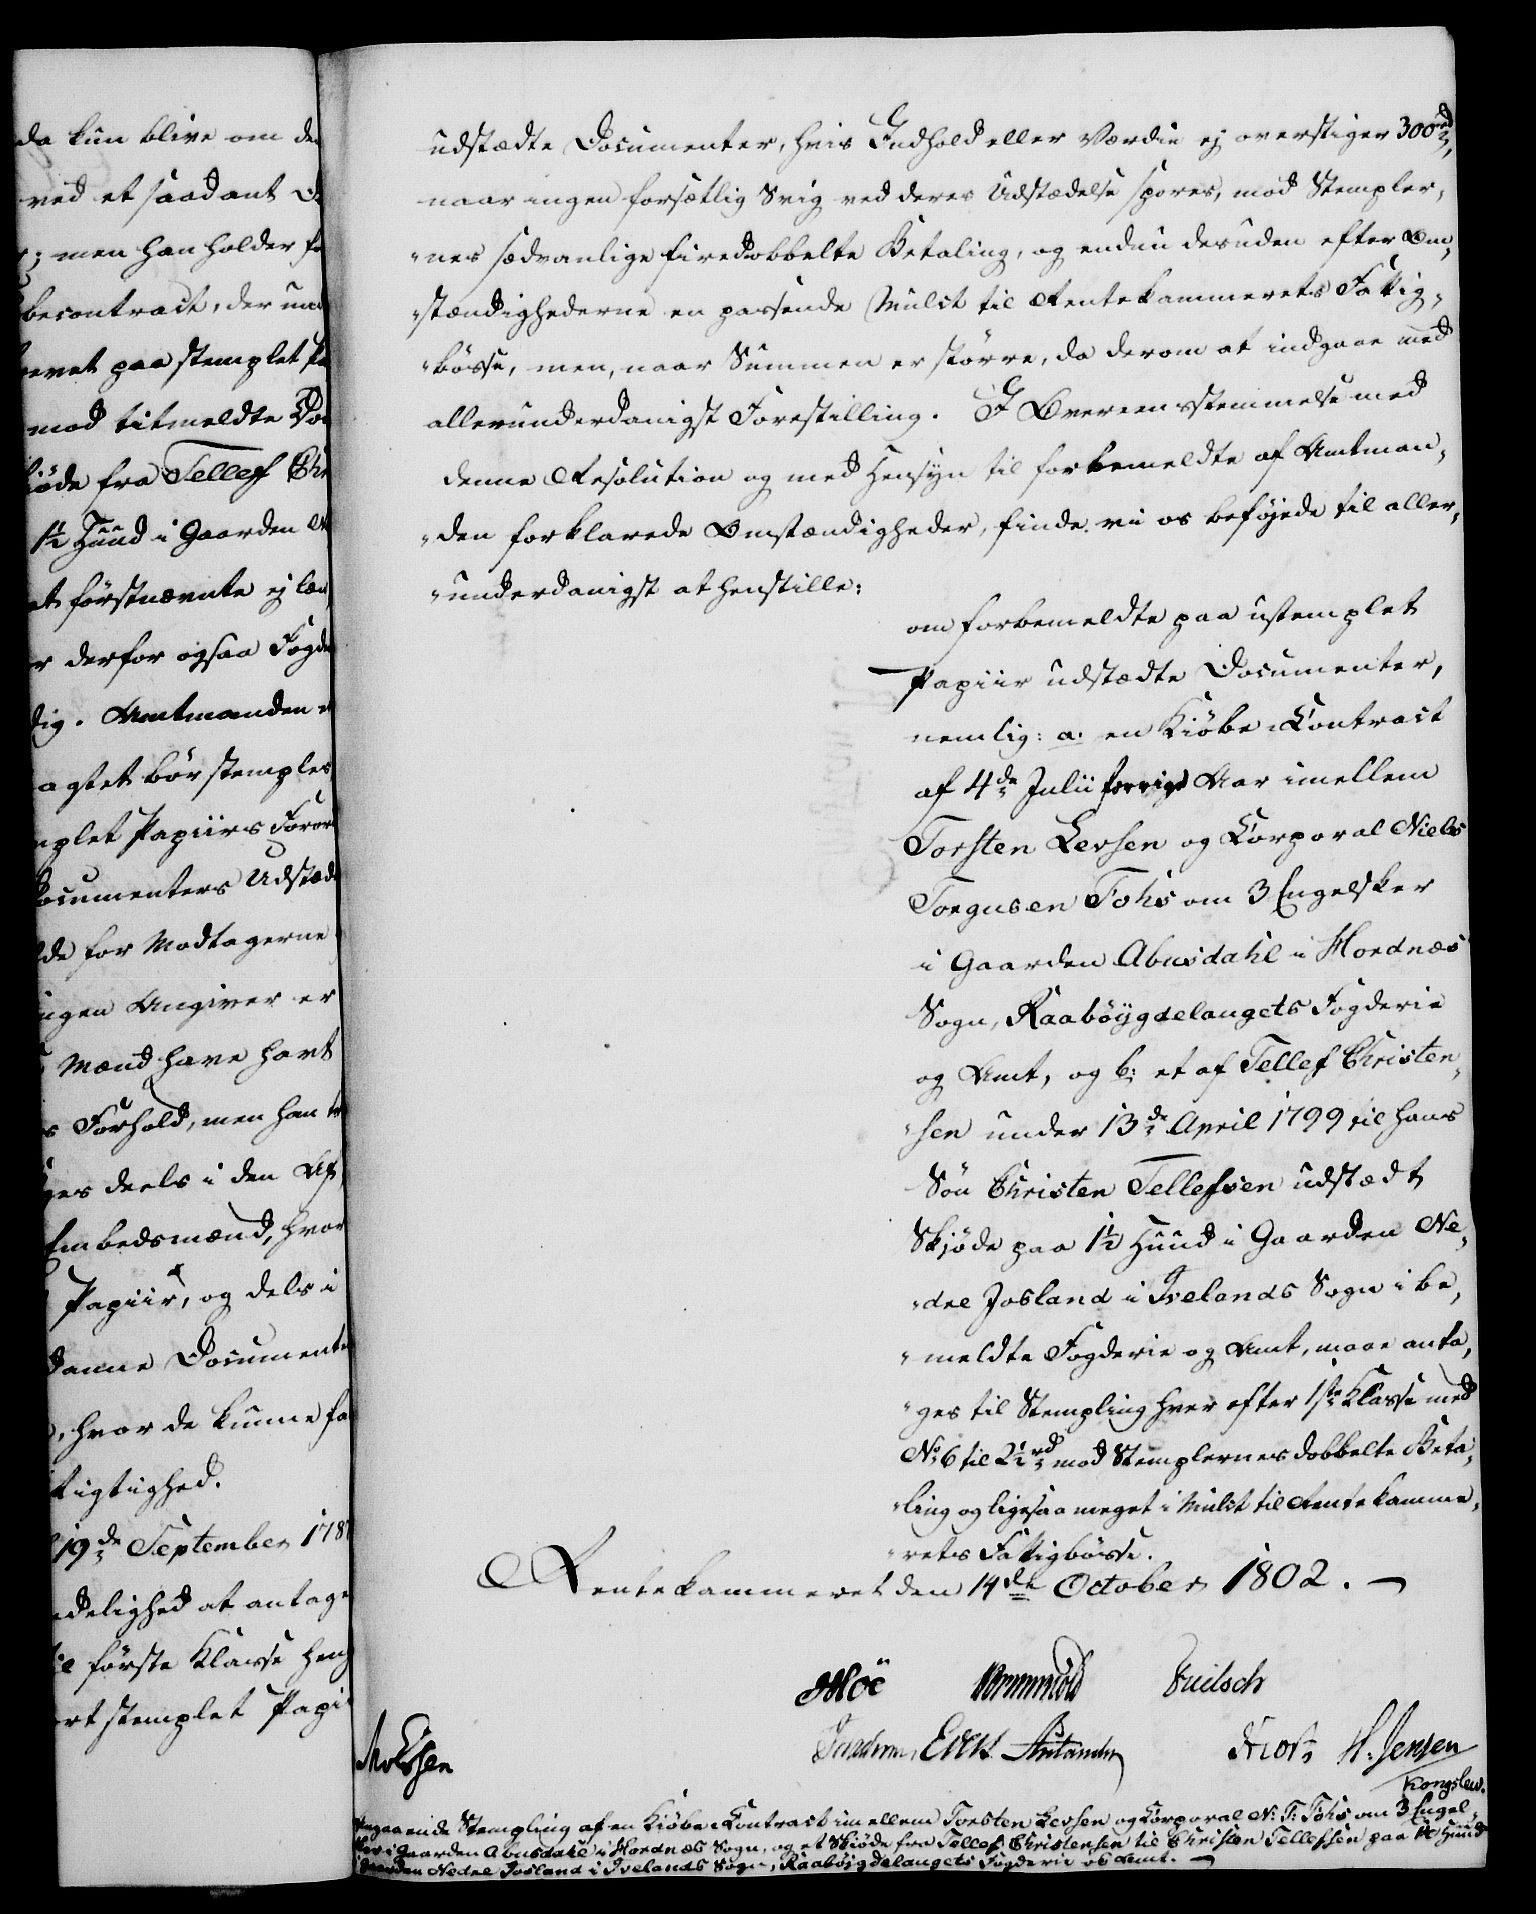 da kun blive om de
ved et saadant
; men han holder fo
becontract, der un
evet paa stemplet Pa
mod titmeldte Do
iöde fra Tellef Chr
1½ Huud i Gaarden N
et förstnævnte ej læn
r derfor ogsaa Fogde
dig. Amtmanden
agtet bör stemples
mplet Papiirs Foror
Documenters Udstæd
de for Modtagerne
ingen Angiver er
Mænd have havt
s Forhold, men han
ges deels i den
Embedsmænd, hvor
Papiir, og dels i
danne Documente
, hvor de kunne fa
tigtighed.
19de September 178
delighed at antage
il förste Klasse hen
rt stemplet Papi
udstædte Documenter, hvis Indhold eller Værdie ej overstiger 300 rd,
naar ingen forsætlig Svig ved deres Udstædelse spores, mod Stempler-
nes sædvanlige firedobbelte Betaling, og endnu desuden efter Om-
stændighederne en passende Mulct til Rentekammerets Fattig-
bösse, men, naar Summen er större, da derom at indgaae med
allerunderdanigst Forestilling. I Overeensstemmelse med
denne Resolution og med Hensyn til forbemeldte af Amtman-
den forklarede Omstændigheder, finde vi os beföjede til aller-
underdanigst at henstille:
om forbemeldte paa ustemplet
Papiir udstædte Documenter,
nemlig: a. en Kiöbe-Contract
af 4de Julii forrige Aar imellem
Torsten Levsen og Corporal Niels
Torgusen Fohs om 3 Engelsker
i Gaarden Abusdahl i Hordnæs
Sogn, Raaböygdelaugets Fogderie
og Amt, og b; et af Tellef Christen-
sen under 13de April 1799 til hans
Sön Christen Tellefsen udstædt
Skjöde paa 1½ Huud i Gaarden Ne-
dre Josland i Ivelands Sogn i be-
meldte Fogderie og Amt, maae anta-
ges til Stempling hver efter 1ste Klasse med
No 6 til 2½ rd mod Stemplernes dobbelte Beta-
ling og ligesaa meget i Mulct til Rentekamme-
rets Fattigbösse.
Rentekammeret den 14de October 1802.
Möe Wormskiold
H. Jensen
Angaaende Stempling af en Kiöbe-Contract imellem Torsten Levsen og Corporal N: T: Fohs om 3 Engel-
sker i Gaarden Abusdahl i Hordnæs Sogn, og et Skiöde fra Tellef Christensen til Christen Tellefsen paa 1½ Huud
i Gaarden Nedre Josland i Ivelands Sogn, Raaböigdelaugets Fogderie og Amt.